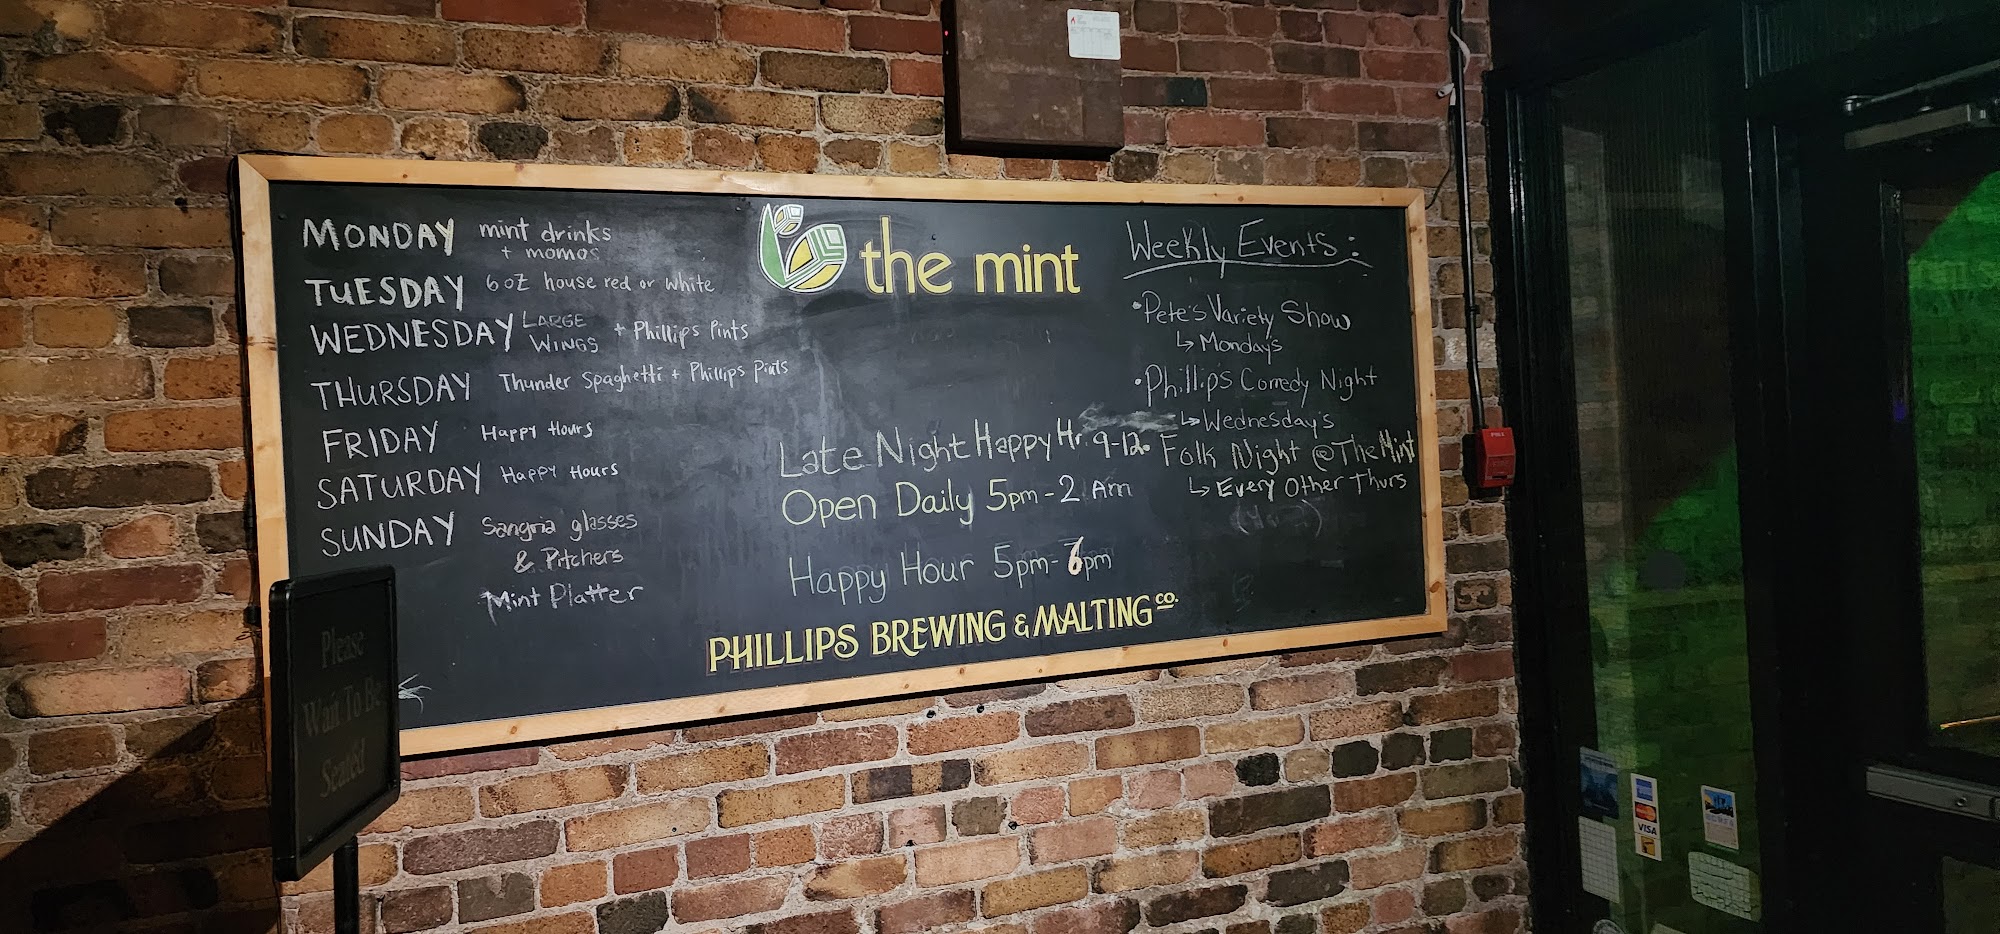 MONDAY mint drinks
+ momos
TUESDAY 6oz house red or white
WEDNESDAY LARGE WINGS + Phillips Pints
THURSDAY Thunder Spaghetti + Phillips Pints
FRIDAY Happy Hours
SATURDAY Happy Hours
SUNDAY Sangria glasses
& Pitchers
Mint Platter
the mint
Late Night Happy Hr. 9-12
Open Daily 5pm - 2 Am
Happy Hour 5pm - 6pm
PHILLIPS BREWING & MALTING CO.
Weekly Events:
• Pete's Variety Show
↳ Mondays
• Phillips Comedy Night
↳ Wednesday's
• Folk Night @ The Mint
↳ Every Other Thurs
Please
Wait To Be
Seated
VISA